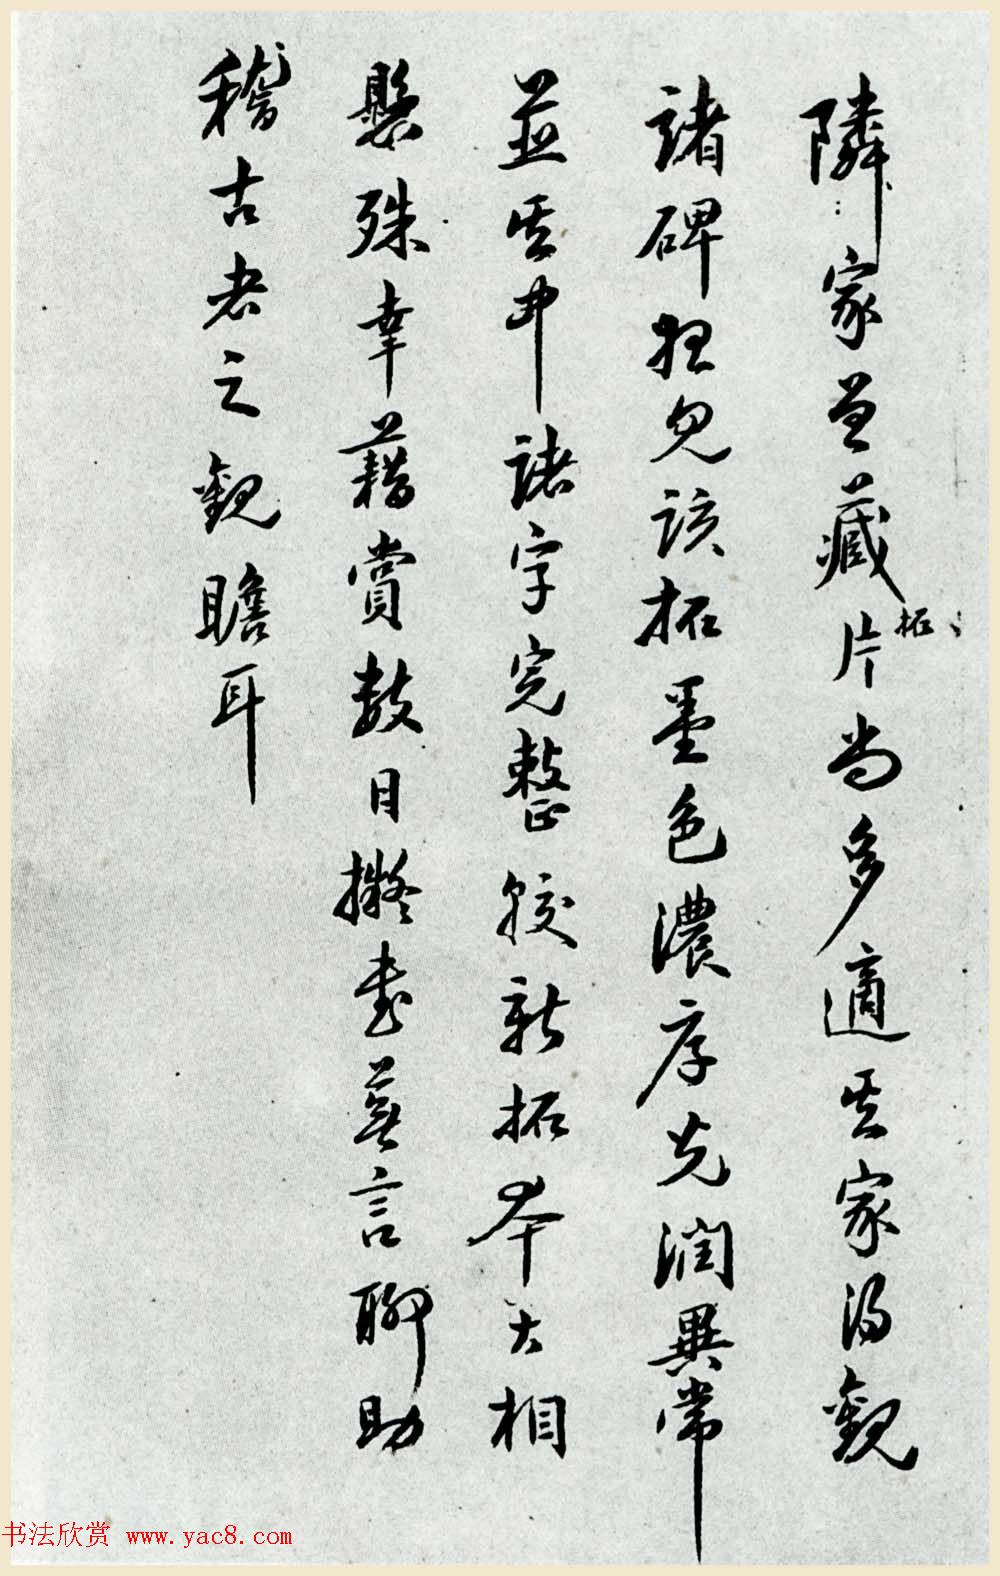 隣家曾藏拓片尚多適其家得觀
諸碑拙見該拓墨色濃厚光潤異常
並其中諸字完整較新拓本大相
懸殊幸藉賞數日擬書蕪言聊助
稽古者之觀瞻耳
书法欣赏 www.yac8.com